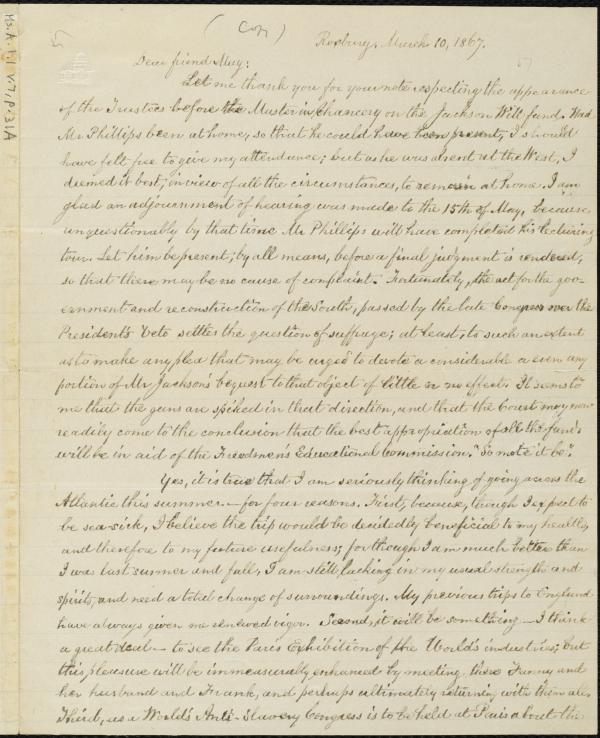 (Cory)
Roxbury, March 10, 1867.
Dear friend May:
Let me thank you for your note respecting the appearance
of the Trustees before the Master in Chancery on the Jackson Will fund. Had
Mr Phillips been at home, so that he could have been present, I should
have felt free to give my attendance; but as he was absent at the West, I
deemed it best, in view of all the circumstances, to remain at home. I am
glad an adjournment of hearing was made to the 15th of May, because
unquestionably by that time Mr Phillips will have completed his lecturing
tour. Let him be present, by all means, before a final judgment is rendered,
so that there may be no cause of complaint. Fortunately, the act for the gov-
ernment and reconstruction of the South, passed by the late Congress over the
President's veto settles the question of suffrage; at least, to such an extent
as to make any plea that may be urged to devote a considerable or even any
portion of Mr Jackson's bequest to that object of little or no effect. It seems to
me that the guns are spiked in that direction, and that the Court may now
readily come to the conclusion that the best appropriation of all the funds
will be in aid of the Freedmen's Educational Commission. "So mote it be".
Yes, it is true that I am seriously thinking of going across the
Atlantic this summer — for four reasons. First, because, though I expect to
be sea-sick, I believe the trip would be decidedly beneficial to my health,
and therefore to my future usefulness; for though I am much better than
I was last summer and fall, I am still lacking in my usual strength and
spirits, and need a total change of surroundings. My previous trips to England
have always given me renewed vigor. Second, it will be something — I think
a great deal — to see the Paris Exhibition of the World's industries; but
this pleasure will be immeasurably enhanced by meeting there Fanny and
her husband and Frank, and perhaps ultimately returning with them also.
Third, as a World's Anti-Slavery Congress is to be held at Paris about the
Ms. A. 1.1 v. 7, p. 31A